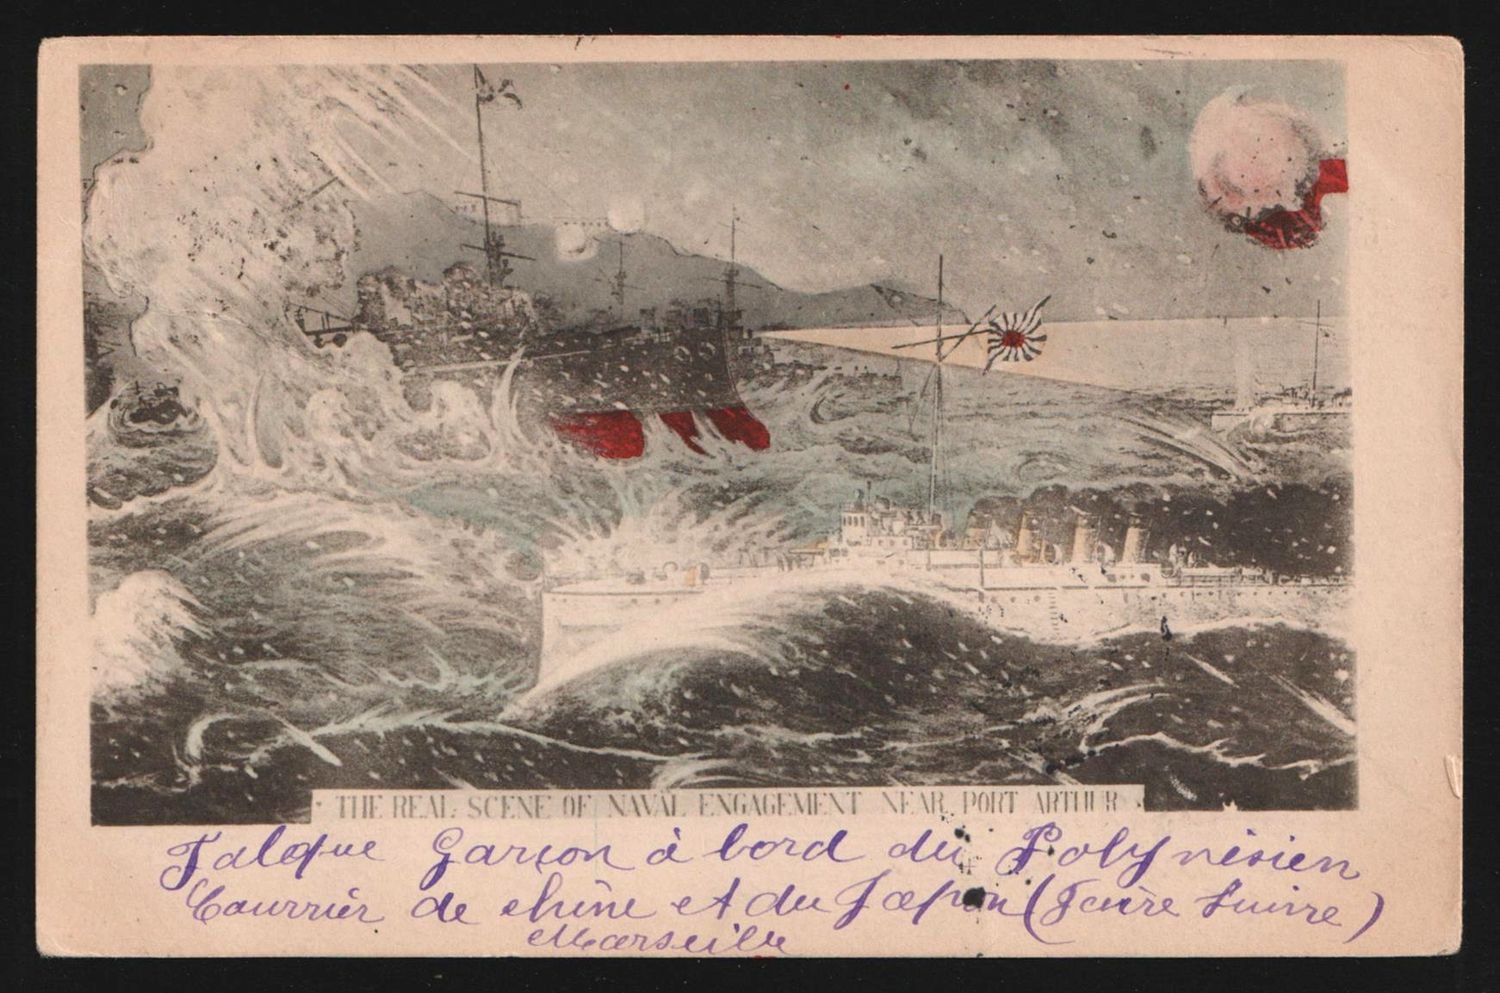 THE REAL. SCENE OF NAVAL ENGAGEMENT NEAR PORT ARTHUR
Falque Garçon à bord du Polynésien
Courrier de chine et du Japon ( suivre )
Marseille